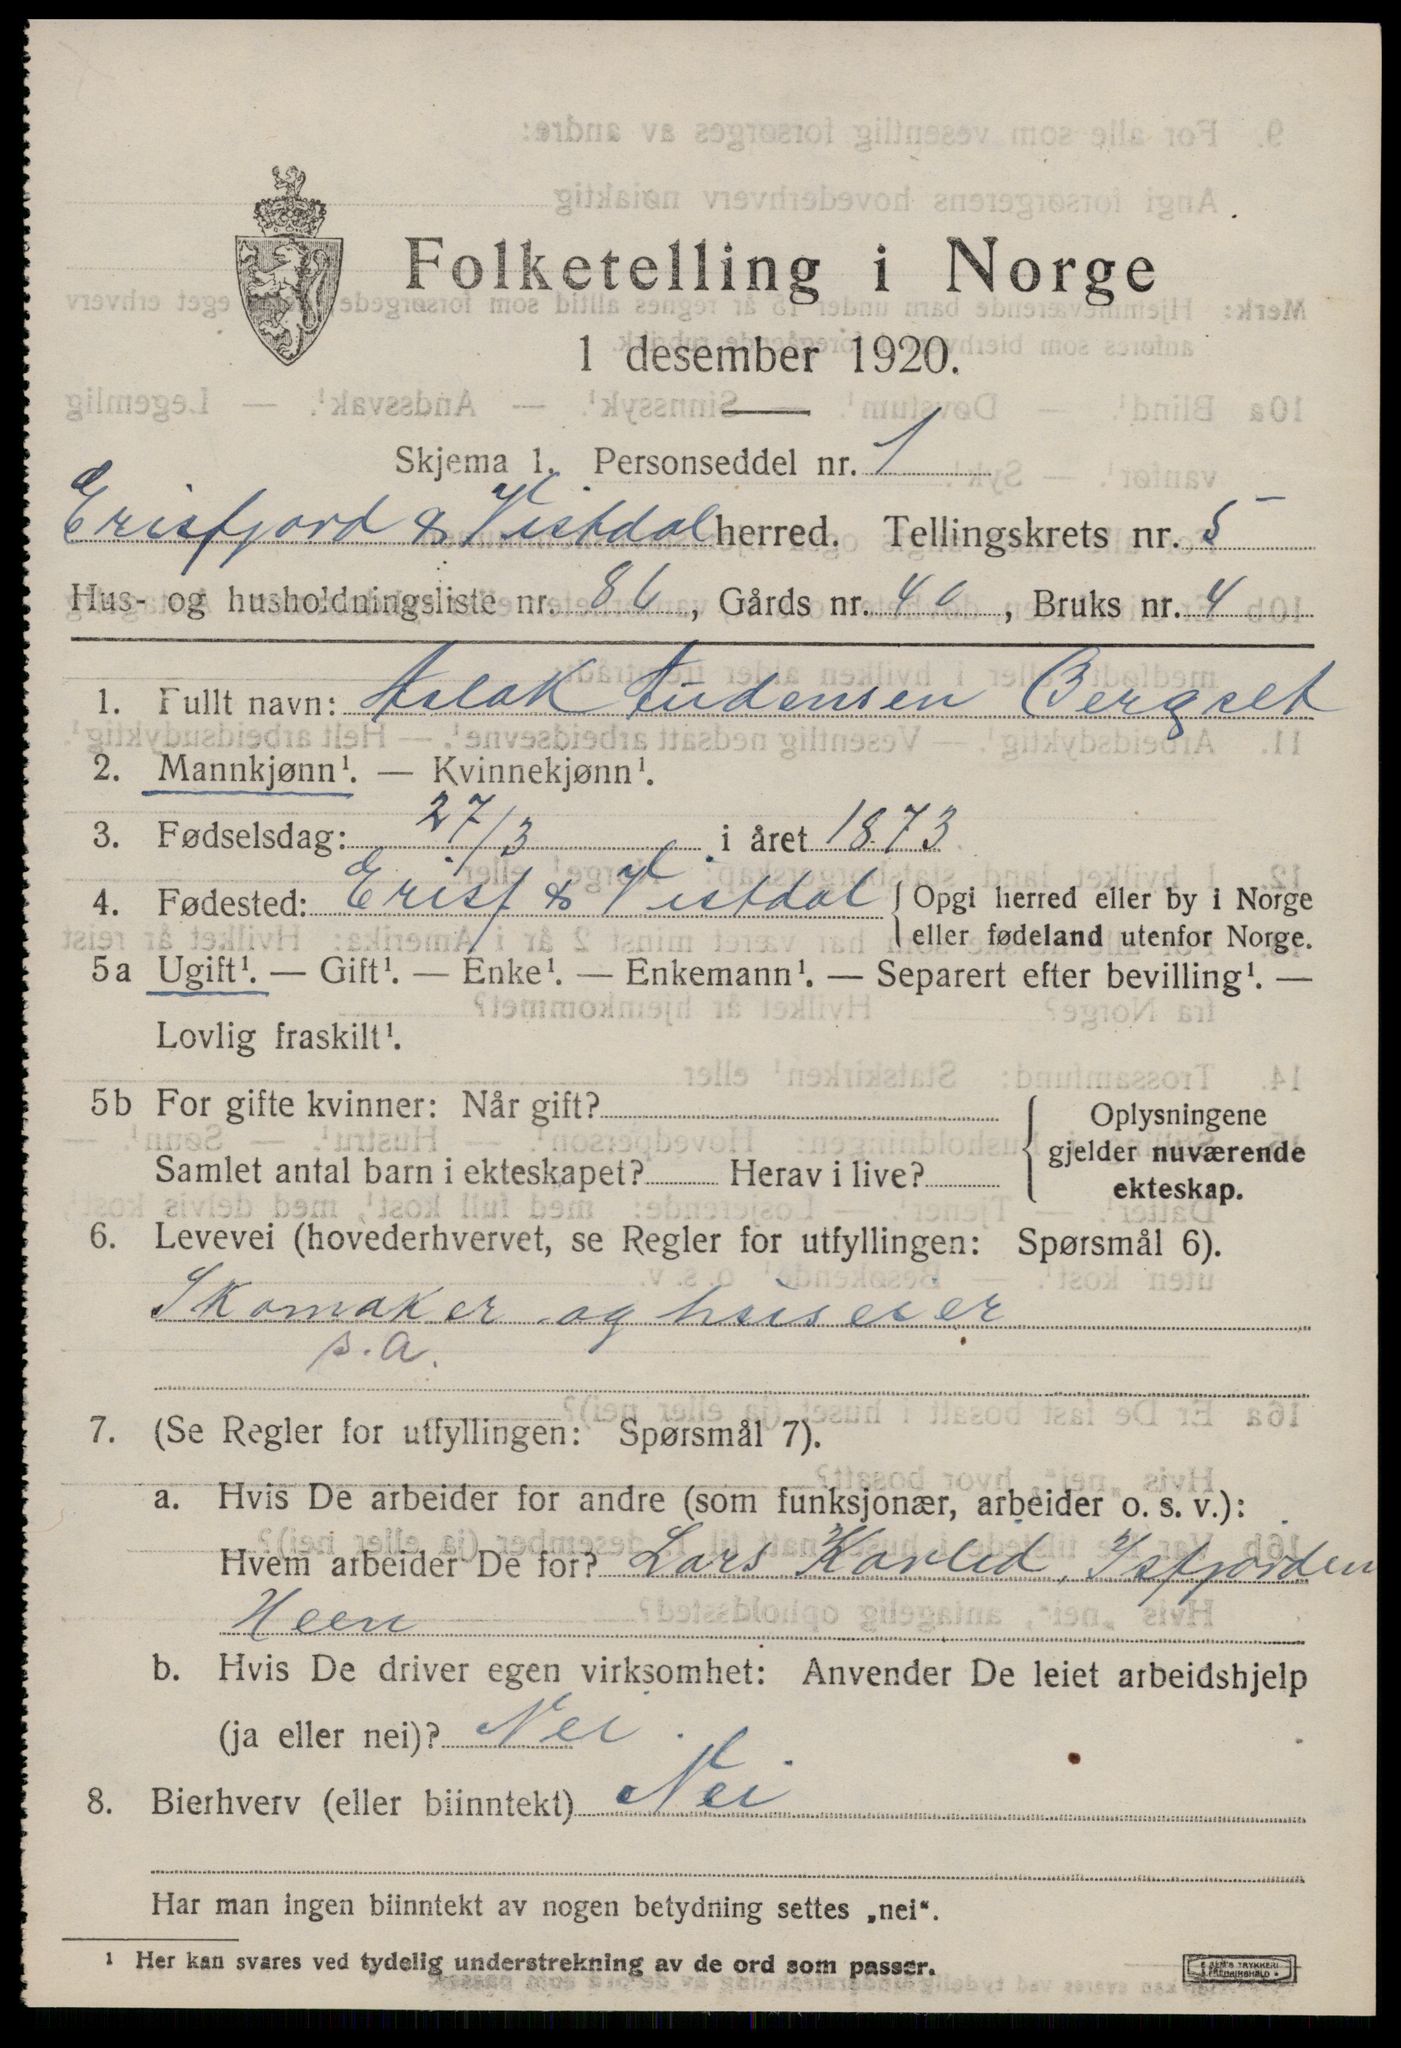 Folketelling i Norge
1 desember 1920.
Skjema 1. Personseddel nr. 1
Erisfjord & Vistdal herred. Tellingskrets nr. 5
Hus- og husholdningsliste nr. 86, Gårds nr. 40, Bruks nr. 4
1. Fullt navn: Aslak Audensen Bergset
2. Mannkjønn¹. — Kvinnekjønn¹.
3. Fødselsdag: 27/3 i året 1873
4. Fødested: Erisf & Vistdal { Opgi herred eller by i Norge
eller fødeland utenfor Norge.
5a Ugift¹. — Gift¹. — Enke¹. — Enkemann¹. — Separert efter bevilling¹. —
Lovlig fraskilt¹.
5b For gifte kvinner: Når gift? { Oplysningene
Samlet antal barn i ekteskapet? Herav i live? gjelder nuværende
ekteskap.
6. Levevei (hovederhvervet, se Regler for utfyllingen: Spørsmål 6).
Skomaker og huseier
s.a.
7. (Se Regler for utfyllingen: Spørsmål 7).
a. Hvis De arbeider for andre (som funksjonær, arbeider o. s. v.):
Hvem arbeider De for? Lars Karlid, Isfjorden
Heen
b. Hvis De driver egen virksomhet: Anvender De leiet arbeidshjelp
(ja eller nei)? Nei.
8. Bierhverv (eller biinntekt) Nei
Har man ingen biinntekt av nogen betydning settes „nei“.
¹ Her kan svares ved tydelig understrekning av de ord som passer.